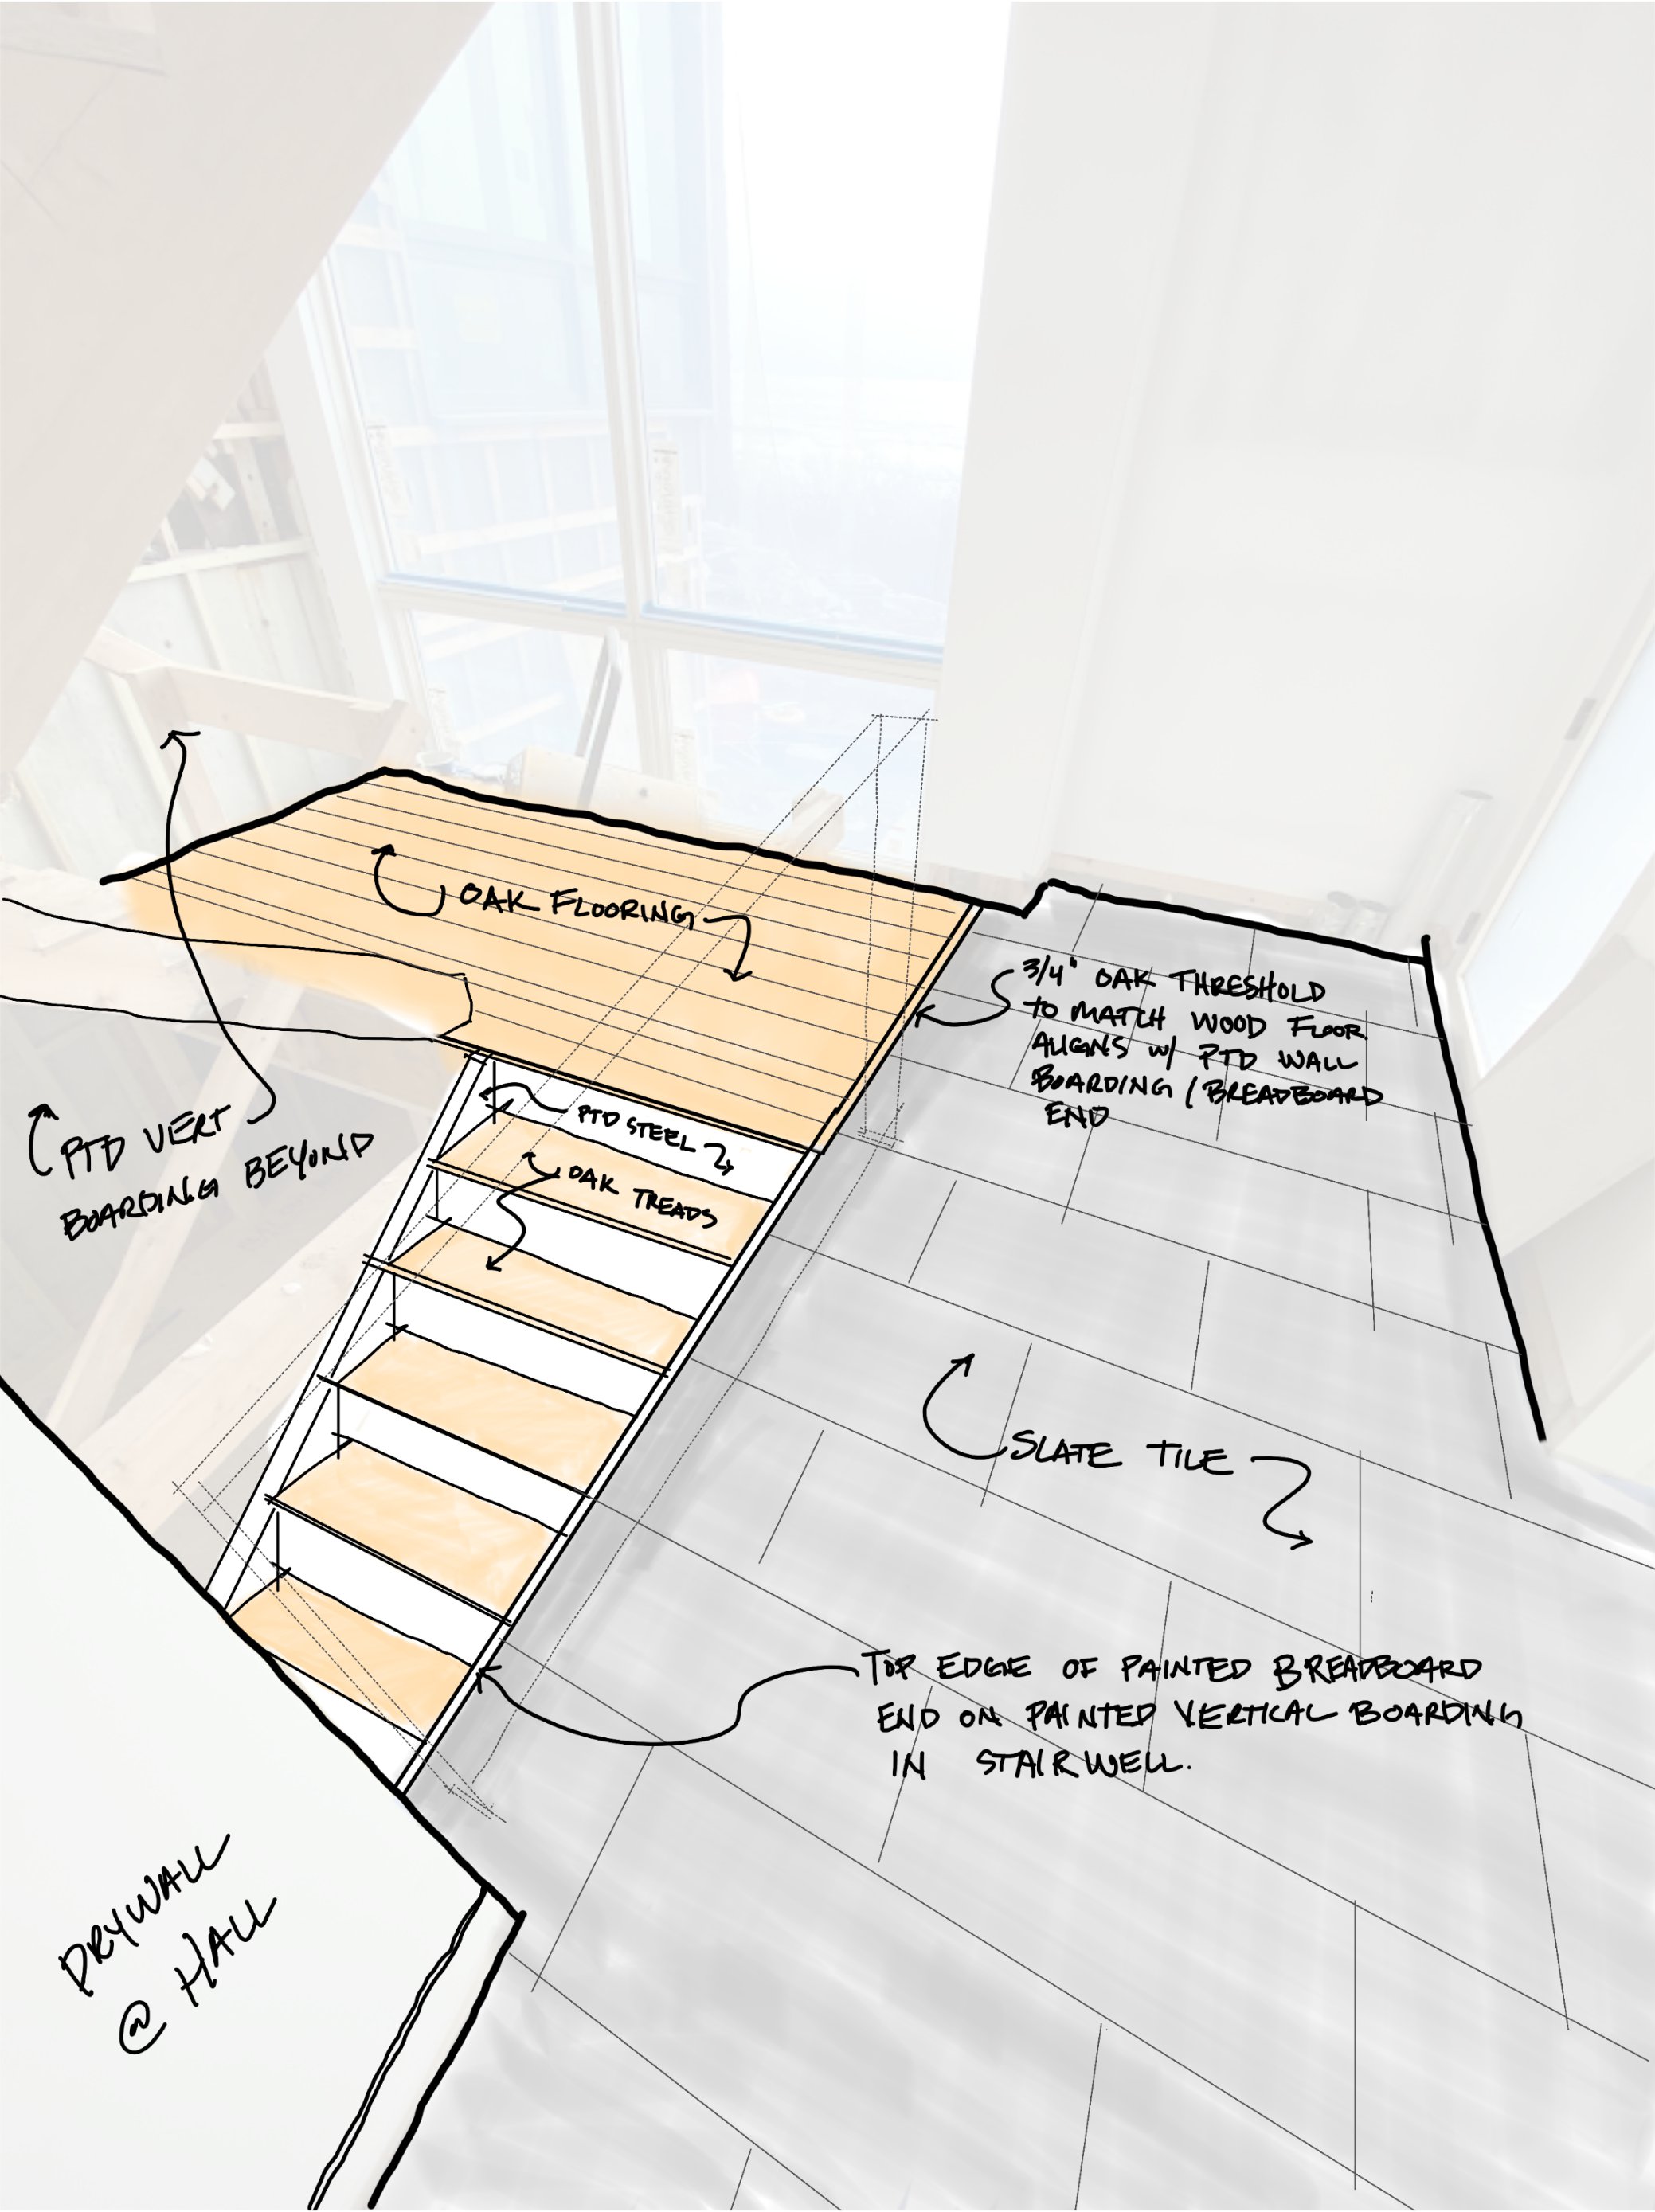 OAK FLOORING
3/4" OAK THRESHOLD
TO MATCH WOOD FLOOR
ALIGNS W/ PTD WALL
BOARDING / BREADBOARD
END
PTD STEEL
OAK TREADS
PTD VERT
BOARDING BEYOND
SLATE TILE
TOP EDGE OF PAINTED BREADBOARD
END ON PAINTED VERTICAL BOARDING
IN STAIRWELL.
DRYWALL
@ HALL